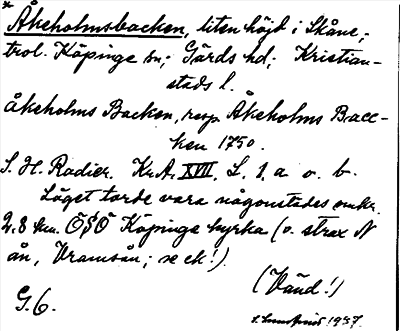 * Åkeholmsbacken, liten höjd i Skåne,
trol. Köpinge sn; Gärds hd; Kristian-
stads l.
åkeholms Backen, resp. Åkeholms Bacc-
ken 1750.
S. H. Radier. Kr.A. XVII. L. 1. a o. b.
Läget torde vara någonstädes omkr.
2.8 km. ÖSÖ Köpinge kyrka (o. strax N
ån, Vramsån; se ek!).
(Vänd!)
G.6.
1937.